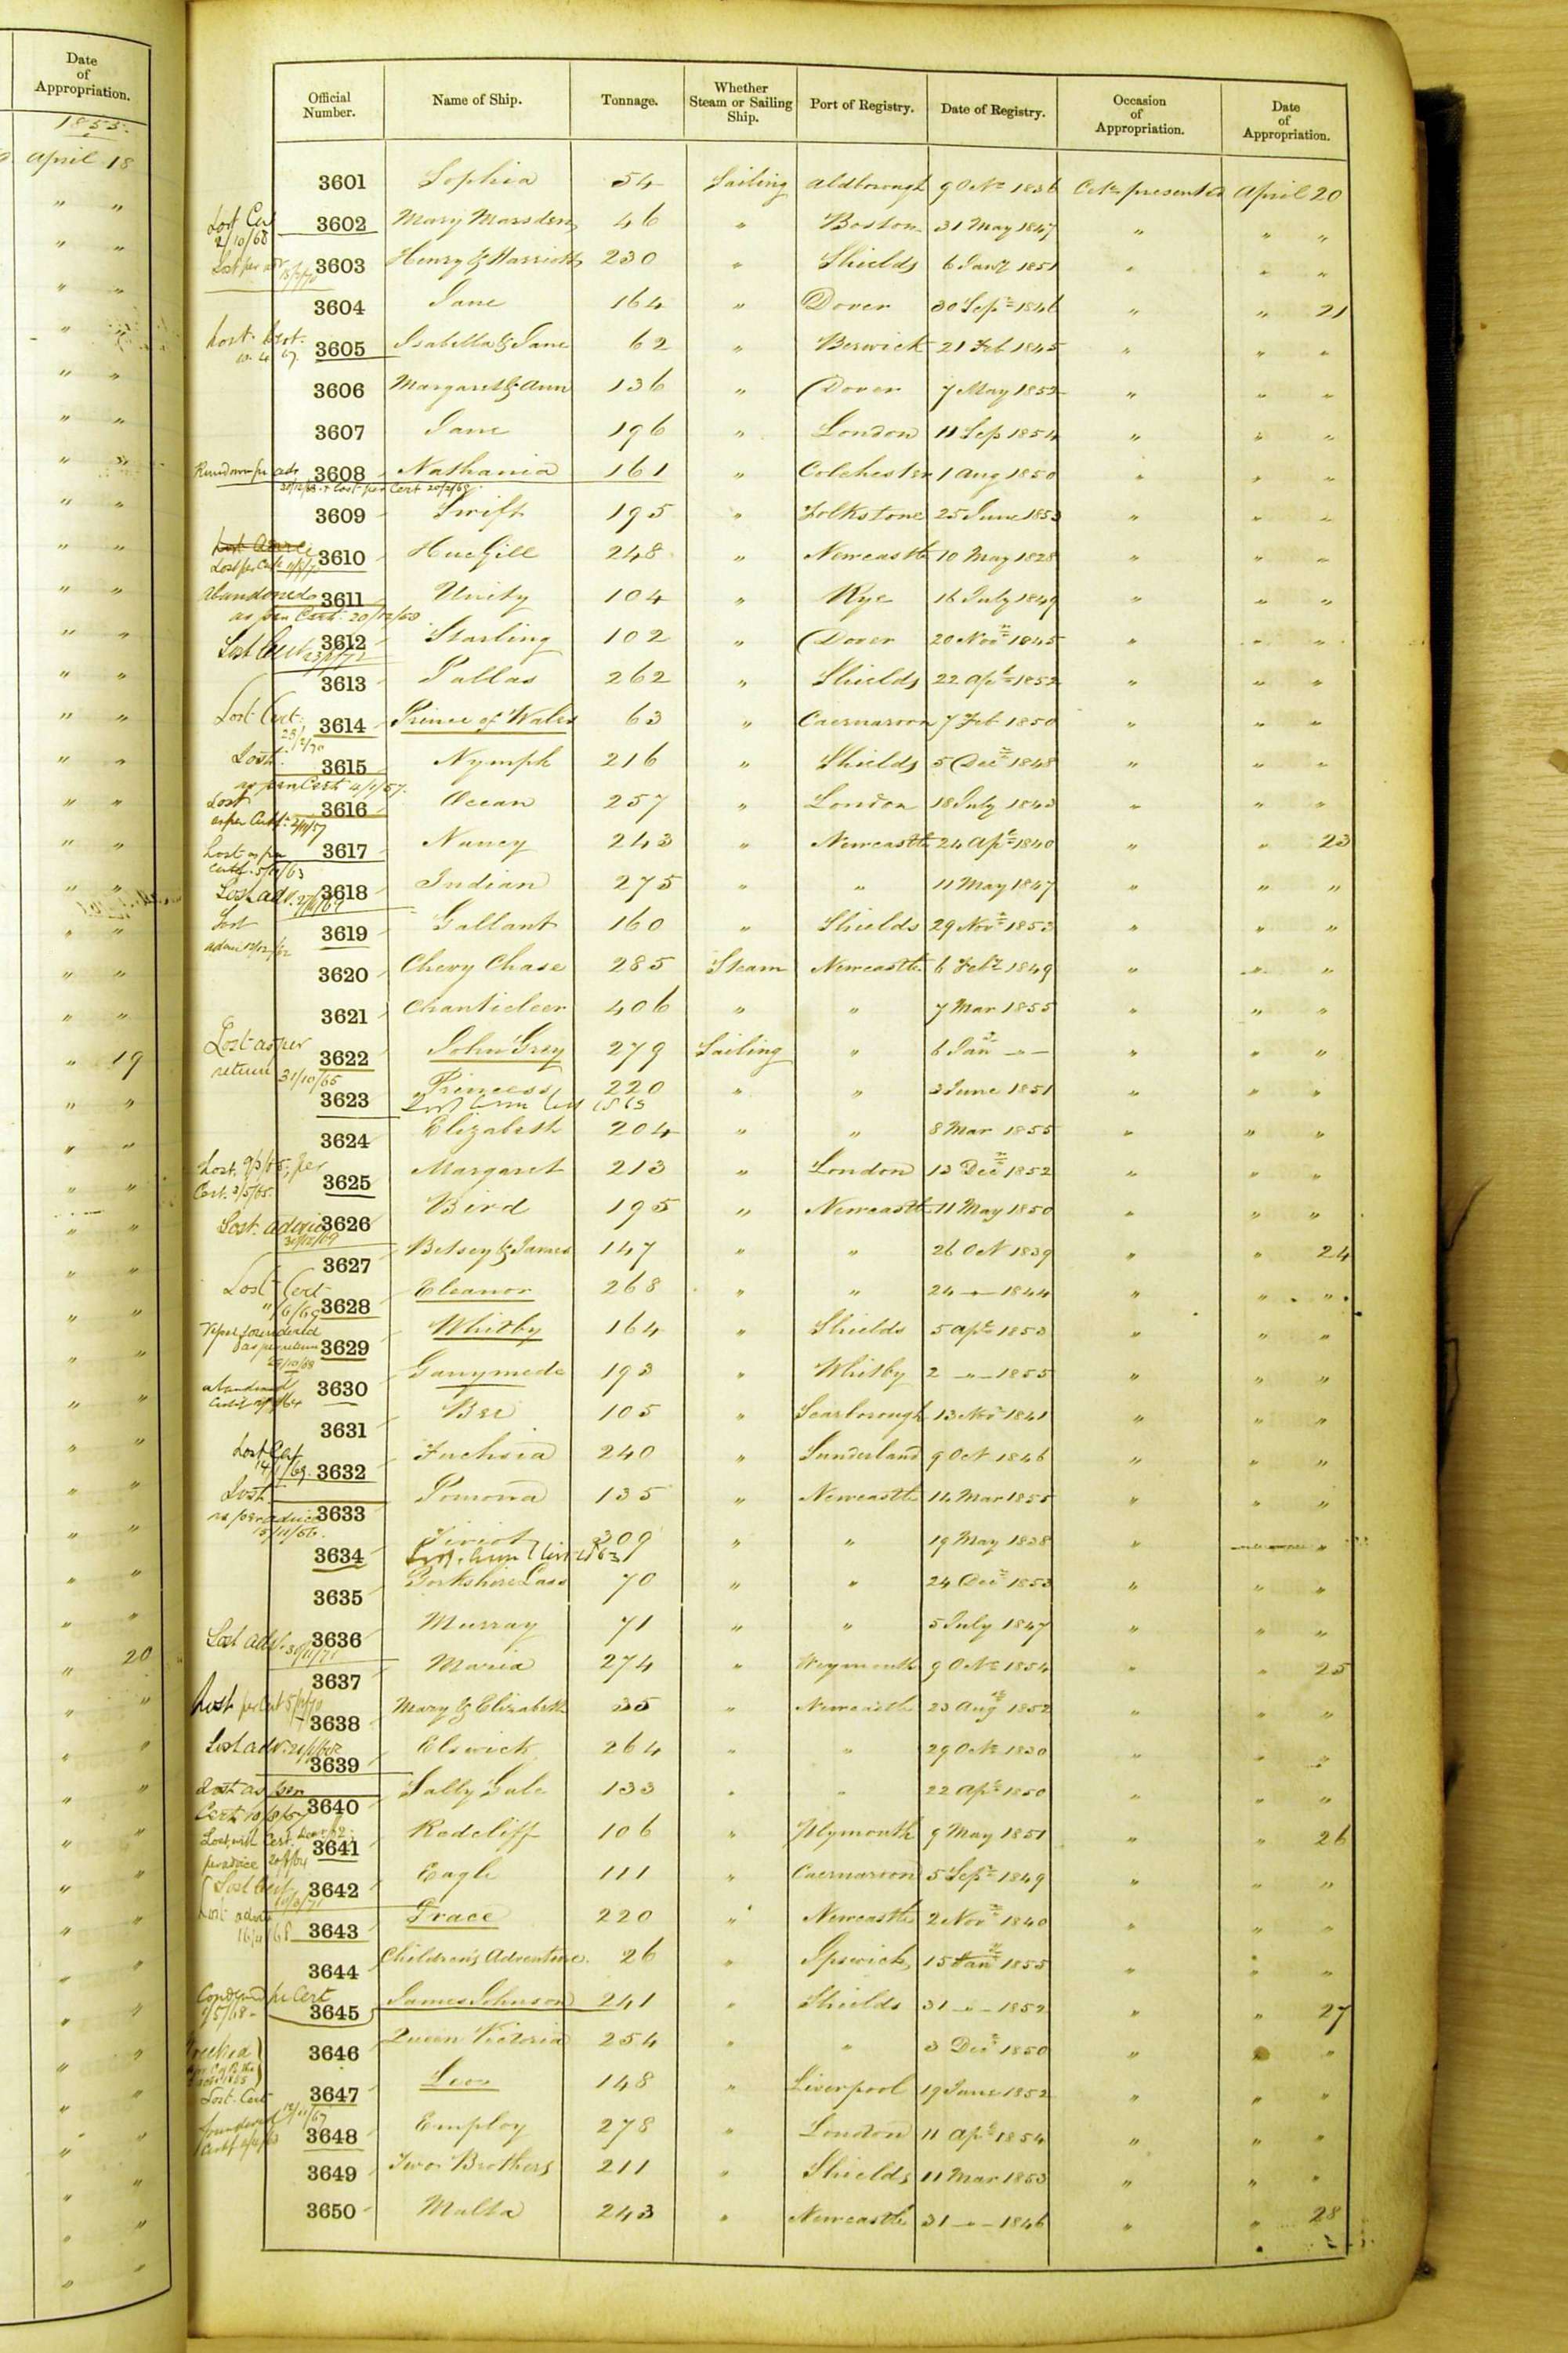 Date of Appropriation.
1855.
April 18
" "
" 19
" 20
Official Number. Name of Ship. Tonnage. Whether Steam or Sailing Ship. Port of Registry. Date of Registry. Occasion of Appropriation. Date of Appropriation.
3601 Sophia 54 Sailing Aldborough 9 Octr 1836 presented April 20
Lost 2/10/68 3602 Mary Marsden 46 " Boston 31 May 1847 " " "
Lost per 3603 Henry & Harriott 230 " Shields 6 Jany 1851 " " "
3604 Jane 164 " Dover 30 Sepr 1846 " " 21
Lost 3605 Isabella & Jane 62 " Berwick 21 Feb 1845 " " "
3606 Margaret & Ann 136 " Dover 7 May 1852 " " "
3607 Jane 196 " London 11 Sep 1854 " " "
3608 Nathania 161 " Colchester 1 Aug 1850 " " "
Lost per Cert 20/2/68
3609 Swift 195 " Folkstone 25 June 1853 " " "
Lost per 3610 Huegill 248 " Newcastle 10 May 1828 " " "
Abandoned 3611 Unity 104 " Rye 16 July 1849 " " "
as per Cert 20/12/60
Lost Cert 3612 Starling 102 " Dover 20 Novr 1845 " " "
3613 Pallas 262 " Shields 22 Apl 1852 " " "
Lost Cert. 3614 Prince of Wales 63 " Caernarvon 7 Feb 1850 " " "
Lost 3615 Nymph 216 " Shields 5 Decr 1848 " " "
as per Cert 4/1/57.
Lost as per 3616 Ocean 257 " London 18 July 1843 " " "
Lost as per 3617 Nancy 243 " Newcastle 24 Apl 1840 " " 23
Lost adv. 3618 Indian 275 " " 11 May 1847 " " "
Lost 3619 Gallant 160 " Shields 29 Novr 1853 " " "
3620 Chevy Chase 285 Steam Newcastle 6 Feby 1849 " " "
3621 Chanticleer 406 " " 7 Mar 1855 " " "
Lost as per return 31/10/65 3622 John Grey 279 Sailing " 6 Jan " " " "
3623 Princess 220 " " 3 June 1851 " " "
3624 Elizabeth 204 " " 8 Mar 1855 " " "
Lost per Cert. 3/5/65. 3625 Margaret 213 " London 13 Decr 1852 " " "
Lost advice 3626 Bird 195 " Newcastle 11 May 1850 " " "
3627 Betsey & James 147 " " 26 Oct 1839 " " 24
Lost Cert 3628 Eleanor 268 " " 24 " 1844 " " "
foundered as per return 3629 Whitby 164 " Shields 5 Apl 1853 " " "
abandoned 3630 Ganymede 193 " Whitby 2 " 1855 " " "
3631 Bee 105 " Scarborough 13 Novr 1841 " " "
Lost Cert 3632 Fuchsia 240 " Sunderland 9 Oct 1846 " " "
Lost as per advice 15/11/56. 3633 Pomona 135 " Newcastle 14 Mar 1855 " " "
3634 Tiviot 309 " " 19 May 1838 " " "
3635 Yorkshire Lass 70 " " 24 Decr 1853 " " "
Lost adv. 30/11/71 3636 Murray 71 " " 5 July 1847 " " "
3637 Maria 274 " Weymouth 9 Octr 1854 " " 25
Lost per Cert 3638 Mary & Elizabeth 35 " Newcastle 23 Aug 1852 " " "
Lost adv. 3639 Elswick 264 " " 29 Octr 1830 " " "
Lost as per Cert 3640 Sally Gale 133 " " 22 Apl 1850 " " "
3641 Redcliff 106 " Plymouth 9 May 1851 " " 26
Lost Cert 3642 Eagle 111 " Caernarvon 5 Sepr 1849 " " "
Lost advice 3643 Grace 220 " Newcastle 2 Novr 1840 " " "
3644 Children's Adventure 26 " Ipswich 15 Jan 1855 " " "
Condemned pr Cert 3645 James Johnson 241 " Shields 31 " 1852 " " 27
3646 Queen Victoria 254 " " 3 Decr 1850 " " "
Lost Cert 12/11/67 3647 Leo 148 " Liverpool 19 June 1852 " " "
foundered 3648 Employ 278 " London 11 Apl 1854 " " "
3649 Two Brothers 211 " Shields 11 Mar 1853 " " "
3650 Malta 243 " Newcastle 31 " 1846 " " 28